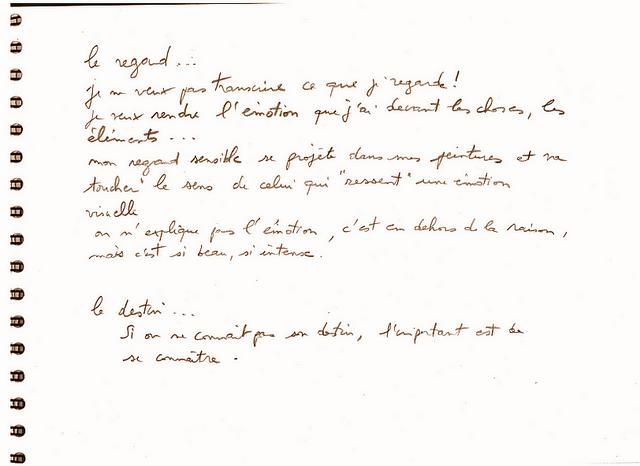 le regard...
je ne veux pas transcrire ce que j'regarde!
je veux rendre l'émotion que j'ai devant les choses, les
éléments...
mon regard sensible se projète dans mes peintures et va
toucher le sens de celui qui "ressent" une émotion
visuelle
on n'explique pas l'émotion, c'est en dehors de la raison,
mais c'est si beau, si intense.
le destin...
Si on ne connait pas son destin, l'important est de
se connaître.